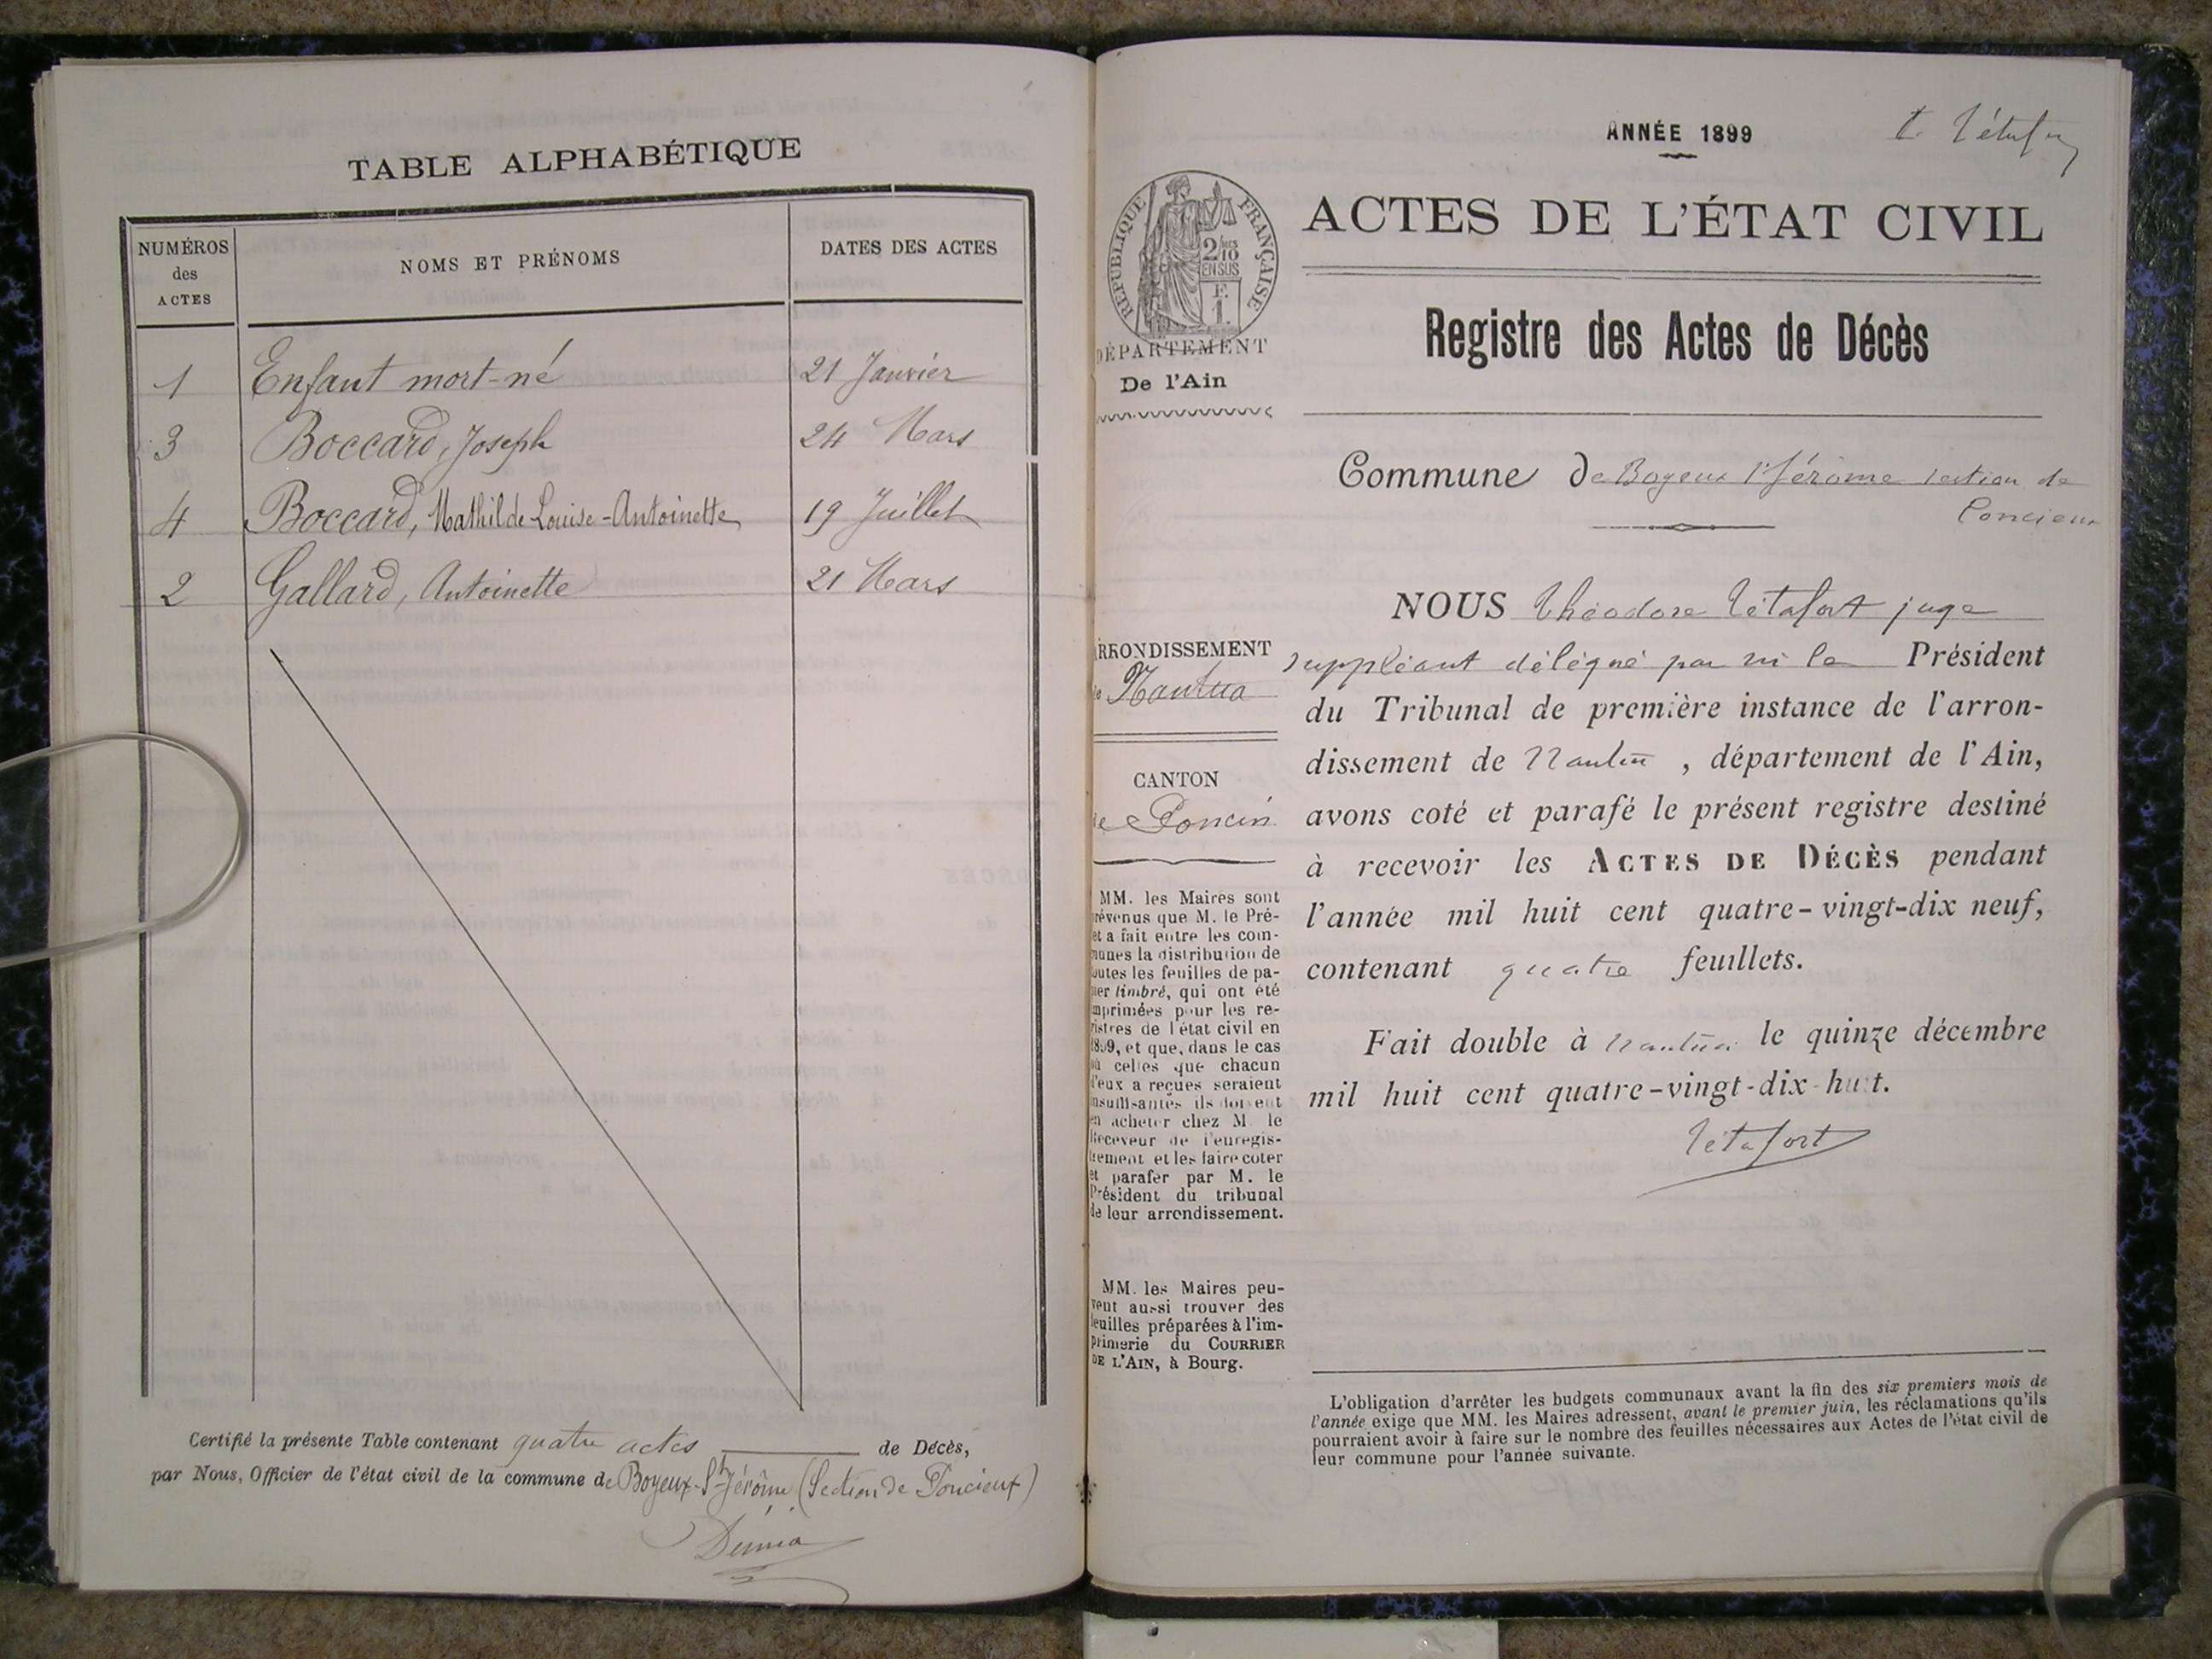 TABLE ALPHABÉTIQUE
NUMÉROS
des
ACTES
NOMS ET PRÉNOMS
DATES DES ACTES
1 Enfant mort-né 21 Janvier
3 Boccard, Joseph 24 Mars
4 Boccard, Mathilde Louise-Antoinette 19 Juillet
2 Gallard, Antoinette 21 Mars
Certifié la présente Table contenant quatre actes de Décès,
par Nous, Officier de l'état civil de la commune de Boyeux-St Jérôme (Section de Poncieux)
ANNÉE 1899
ACTES DE L'ÉTAT CIVIL
RÉPUBLIQUE FRANÇAISE
2/10
EN SUS
F.
1.
DÉPARTEMENT
De l'Ain
Registre des Actes de Décès
Commune de Boyeux St Jérôme section de
Poncieux
ARRONDISSEMENT
de Nantua
CANTON
de Poncin
MM. les Maires sont
prévenus que M. le Pré-
et a fait entre les com-
munes la distribution de
toutes les feuilles de pa-
pier timbré, qui ont été
imprimées pour les re-
gistres de l'état civil en
1899, et que, dans le cas
où celles que chacun
d'eux a reçues seraient
insuffisantes ils doivent
en acheter chez M. le
Receveur de l'enregis-
trement et les faire coter
et parafer par M. le
Président du tribunal
de leur arrondissement.
MM. les Maires peu-
vent aussi trouver des
feuilles préparées à l'im-
primerie du COURRIER
DE L'AIN, à Bourg.
NOUS Théodore Tétafort juge
suppléant délégué par m le Président
du Tribunal de première instance de l'arron-
dissement de Nantua, département de l'Ain,
avons coté et parafé le présent registre destiné
à recevoir les ACTES DE DÉCÈS pendant
l'année mil huit cent quatre-vingt-dix neuf,
contenant quatre feuillets.
Fait double à Nantua le quinze décembre
mil huit cent quatre-vingt-dix-huit.
Tétafort
L'obligation d'arrêter les budgets communaux avant la fin des six premiers mois de
l'année exige que MM. les Maires adressent, avant le premier juin, les réclamations qu'ils
pourraient avoir à faire sur le nombre des feuilles nécessaires aux Actes de l'état civil de
leur commune pour l'année suivante.